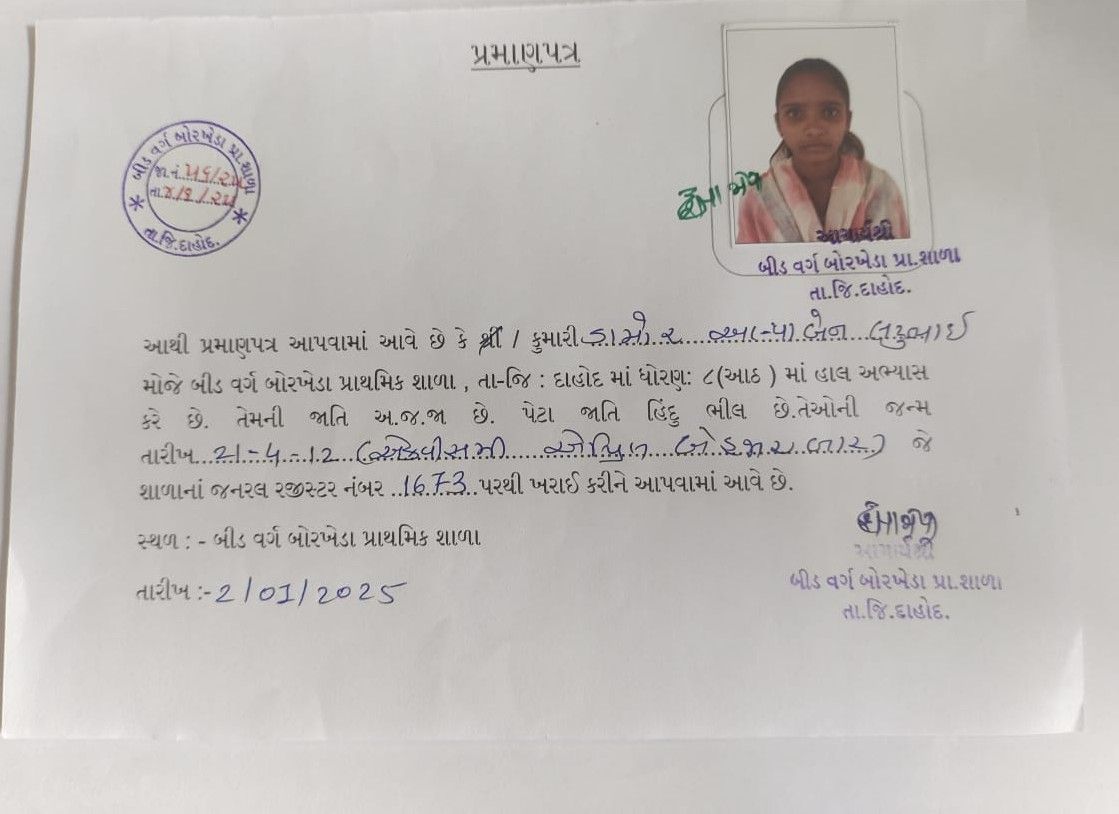 પ્રમાણપત્ર
બીડ વર્ગ બોરખેડા પ્રા.શાળા
જા.નં. ૫૬/૨૫
તા.૪/૧/૨૫
તા.જિ.દાહોદ.
આચાર્યશ્રી
બીડ વર્ગ બોરખેડા પ્રા.શાળા
તા.જિ.દાહોદ.
આથી પ્રમાણપત્ર આપવામાં આવે છે કે શ્રી / કુમારી ડામોર અલ્પાબેન લટુભાઈ
મોજે બીડ વર્ગ બોરખેડા પ્રાથમિક શાળા , તા-જિ : દાહોદ માં ધોરણ: ૮(આઠ ) માં હાલ અભ્યાસ
કરે છે. તેમની જાતિ અ.જ.જા છે. પેટા જાતિ હિંદુ ભીલ છે.તેઓની જન્મ
તારીખ 21-4-12 (એકવીસમી એપ્રિલ બે હજાર બાર) જે
શાળાનાં જનરલ રજીસ્ટર નંબર 1673 પરથી ખરાઈ કરીને આપવામાં આવે છે.
સ્થળ : - બીડ વર્ગ બોરખેડા પ્રાથમિક શાળા
તારીખ :- 2/01/2025
આચાર્યશ્રી
બીડ વર્ગ બોરખેડા પ્રા.શાળા
તા.જિ.દાહોદ.